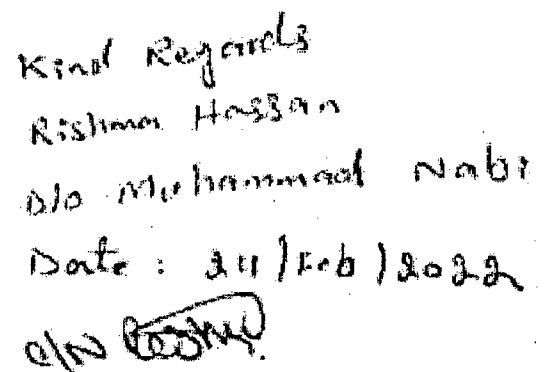 Kind Regards
Rishma Hassan
D/o Muhammad Nabi
Date : 24/Feb/2022